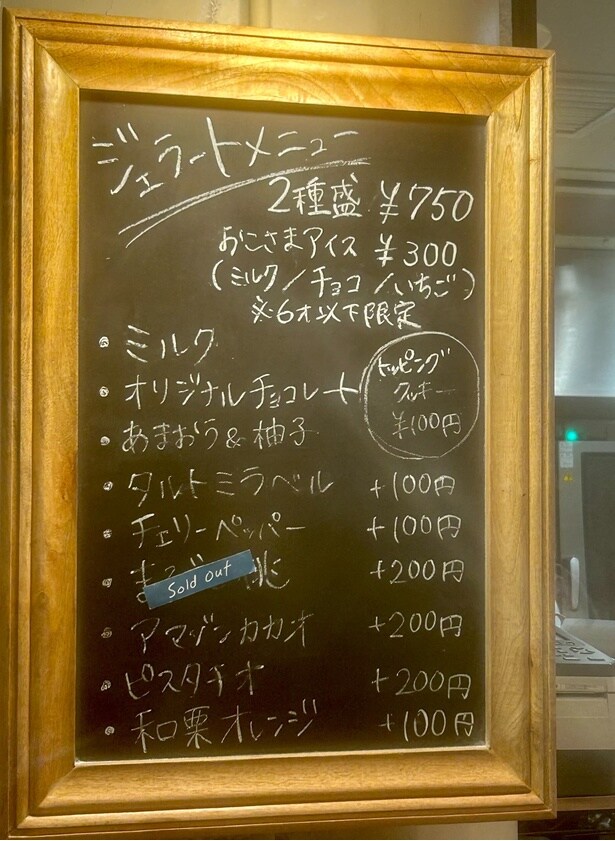 ジェラートメニュー
2種盛 ¥750
おこさまアイス ¥300
(ミルク/チョコ/いちご)
※6才以下限定
・ミルク
・オリジナルチョコレート
・あまおう&柚子
トッピング
クッキー
¥100円
・タルトミラベル +100円
・チェリーペッパー +100円
・ま 桃 +200円
Sold out
・アマゾンカカオ +200円
・ピスタチオ +200円
・和栗オレンジ +100円